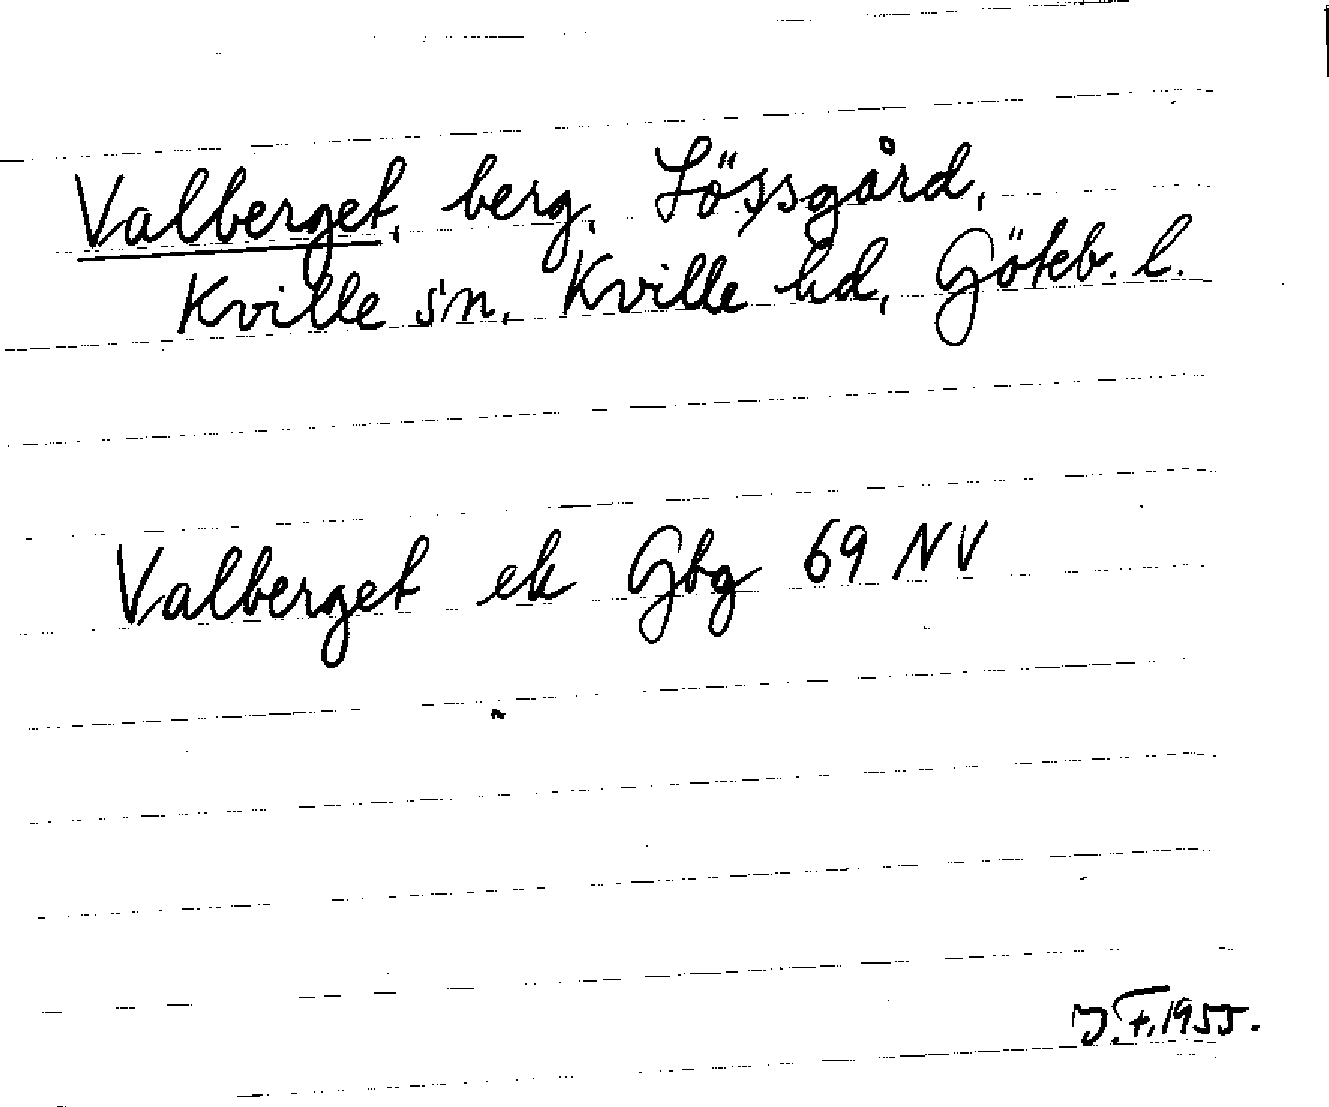 Valberget, berg, Lössgård,
Kville sn, Kville hd, Göteb. l.
Valberget ek Gbg 69 NV
J.F. 1955.